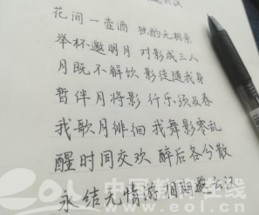 花间一壶酒 独酌无相亲
举杯邀明月 对影成三人
月既不解饮 影徒随我身
暂伴月将影 行乐须及春
我歌月徘徊 我舞影零乱
醒时间交欢 醉后各分散
永结无情游 相期邈云汉
www.eol.cn